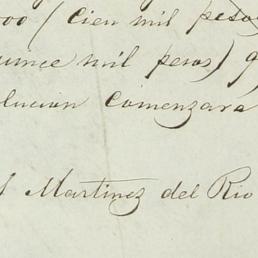 000 (cien mil pesos
quince mil pesos) q
olucion comenzara
Martinez del Rio